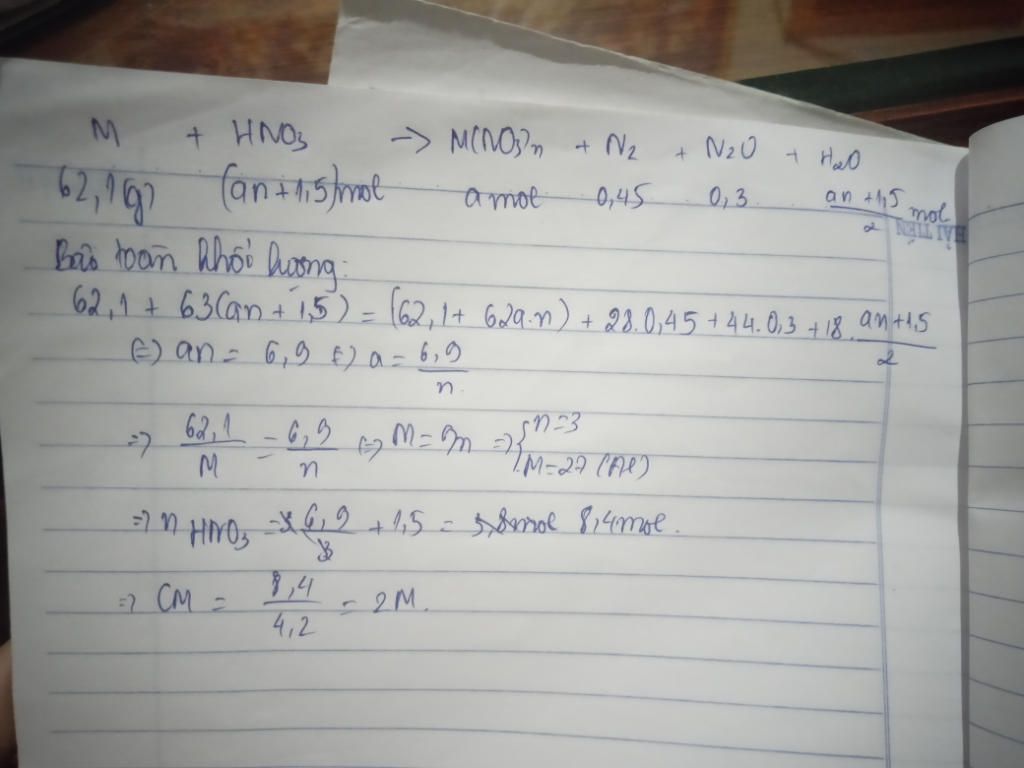 M + HNO3 → M(NO3)n + N2 + N2O + H2O
62,1(g) (an+1,5)mol a mol 0,45 0,3 (an+1,5)/2 mol
HẢI TIẾN
Bảo toàn khối lượng:
62,1 + 63(an+1,5) = (62,1 + 62a.n) + 28.0,45 + 44.0,3 + 18.(an+1,5)/2
(=) an = 6,9 (=) a = 6,9/n
=> 62,1/M = 6,9/n (=) M = 9n => { n=3
M=27 (Al)
=> n HNO3 = 6,9 + 1,5 = 8,4mol.
=> CM = 8,4/4,2 = 2M.